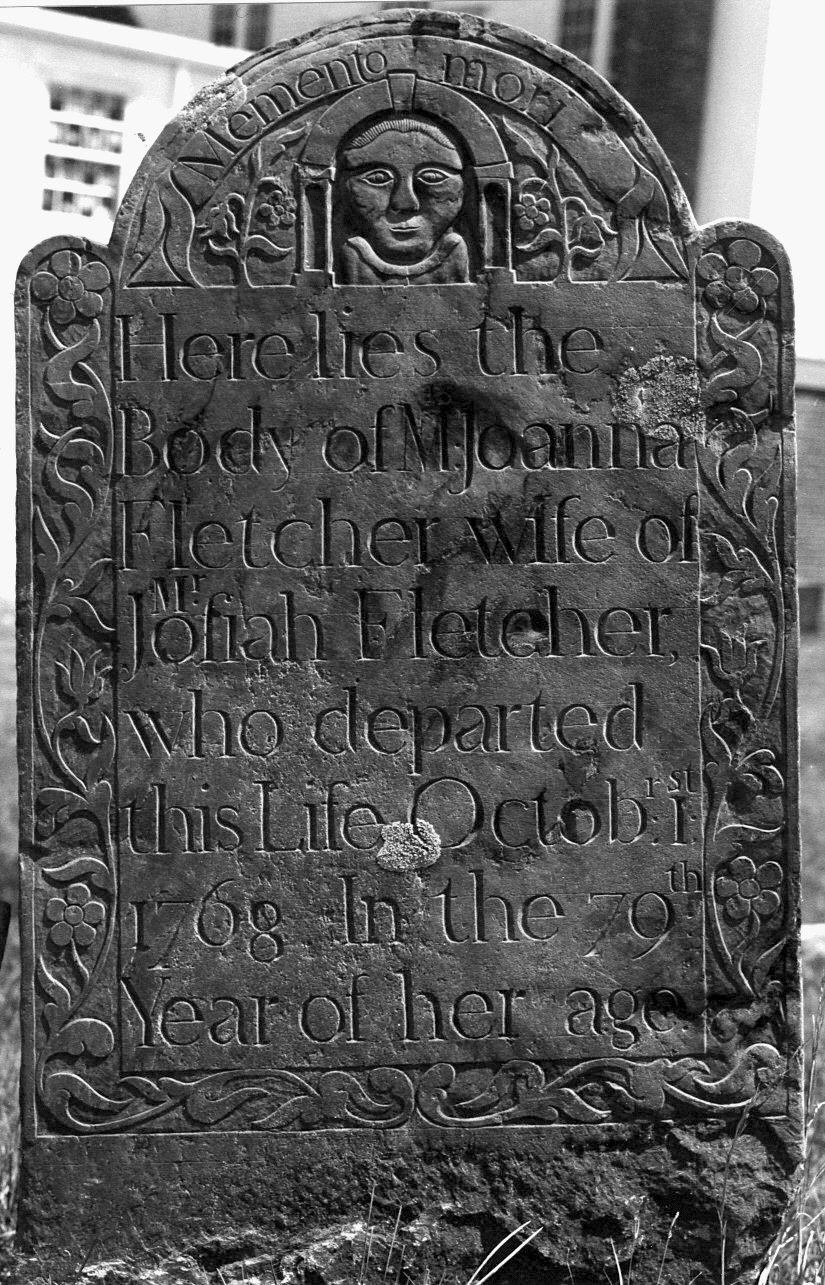 Memento mori
Here lies the
Body of Mrs. Joanna
Fletcher wife of
Mr. Joſiah Fletcher,
who departed
this Life Octobr: 1st:
1768 In the 79th
Year of her age.